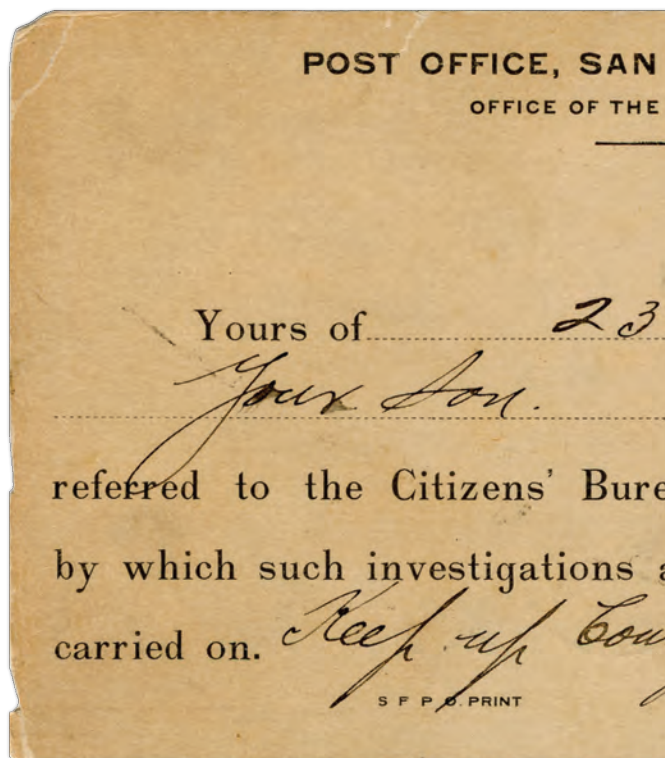 POST OFFICE, SAN
OFFICE OF THE
Yours of 23
Your Son.
referred to the Citizens' Bure
by which such investigations a
carried on. Keep up Cou
S F P O. PRINT